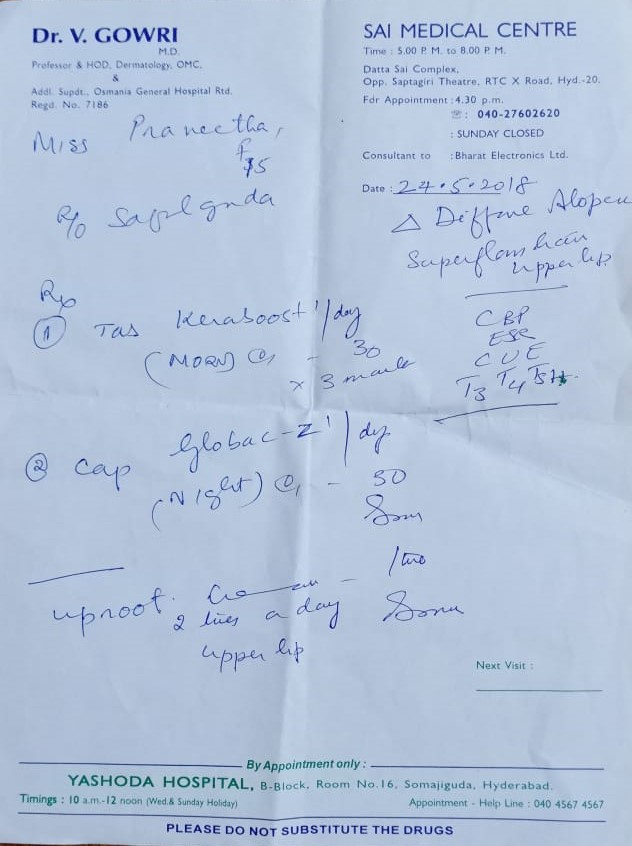 Dr. V. GOWRI
M.D.
Professor & HOD, Dermatology, OMC,
&
Addl. Supdt., Osmania General Hospital Rtd.
Regd. No. 7186
SAI MEDICAL CENTRE
Time : 5.00 P. M. to 8.00 P. M.
Datta Sai Complex,
Opp. Saptagiri Theatre, RTC X Road, Hyd.-20.
For Appointment : 4.30 p.m.
☏ : 040-27602620
: SUNDAY CLOSED
Consultant to : Bharat Electronics Ltd.
Date : 24.5.2018
Miss Praneetha,
F
R/o
Δ Diffuse Alopecia
hair
upper lip
CBP
ESR
CUE
T3 T4 TSH
Rx
① TAB Keraboost 1/day
(MORN) - 30
x 3 months
② Cap Globac-Z 1/day
(Night) - 30
Same
uproot. Cream -
2 times a day Same
upper lip
Next Visit :
By Appointment only :
YASHODA HOSPITAL, B-Block, Room No.16, Somajiguda, Hyderabad.
Timings : 10 a.m.-12 noon (Wed.& Sunday Holiday) Appointment - Help Line : 040 4567 4567
PLEASE DO NOT SUBSTITUTE THE DRUGS